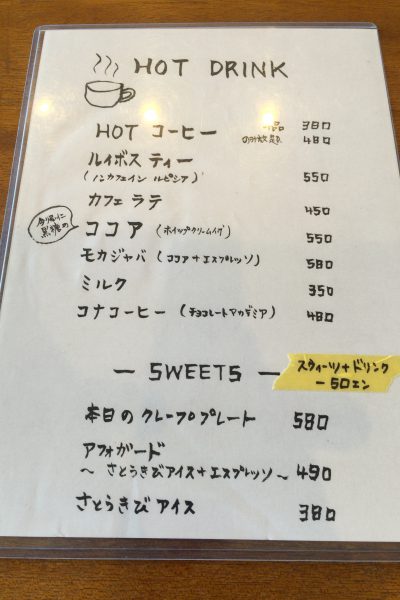 HOT DRINK
HOT コーヒー 品 380
飲み放題 480
ルイボス ティー
(ノンカフェイン ルピシア) 550
カフェ ラテ 450
黒糖の
ココア (ホイップクリームイン) 550
モカジャバ (ココア+エスプレッソ) 580
ミルク 350
コナコーヒー (チョコレートアカデミア) 480
— SWEETS —
スウィーツ+ドリンク
-50エン
本日の クレーププレート 580
アフォガード
~ さとうきびアイス+エスプレッソ ~ 490
さとうきび アイス 380